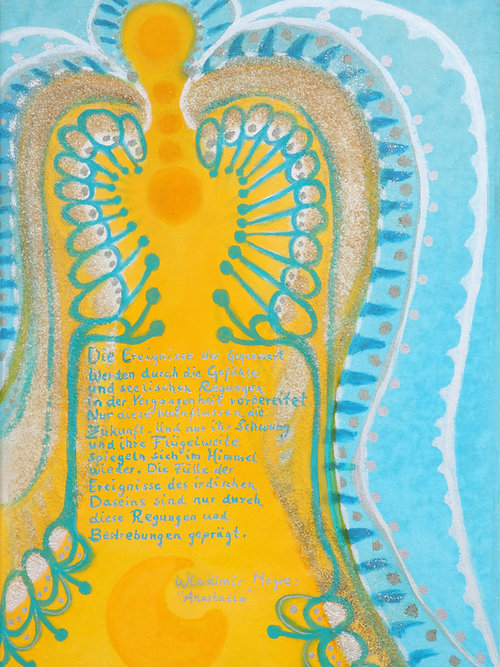 Die Ereignisse der Gegenwart
Werden durch die Gefühle
und seelischen Regungen
in der Vergangenheit vorbereitet
Nur diese beeinflussen die
Zukunft. Und nur ihr Schwung
und ihre Flügelweite
spiegeln sich im Himmel
wieder. Die Fülle der
Ereignisse des irdischen
Daseins sind nur durch
diese Regungen und
Bestrebungen geprägt.
Wladimir Megre:
"Anastasia"